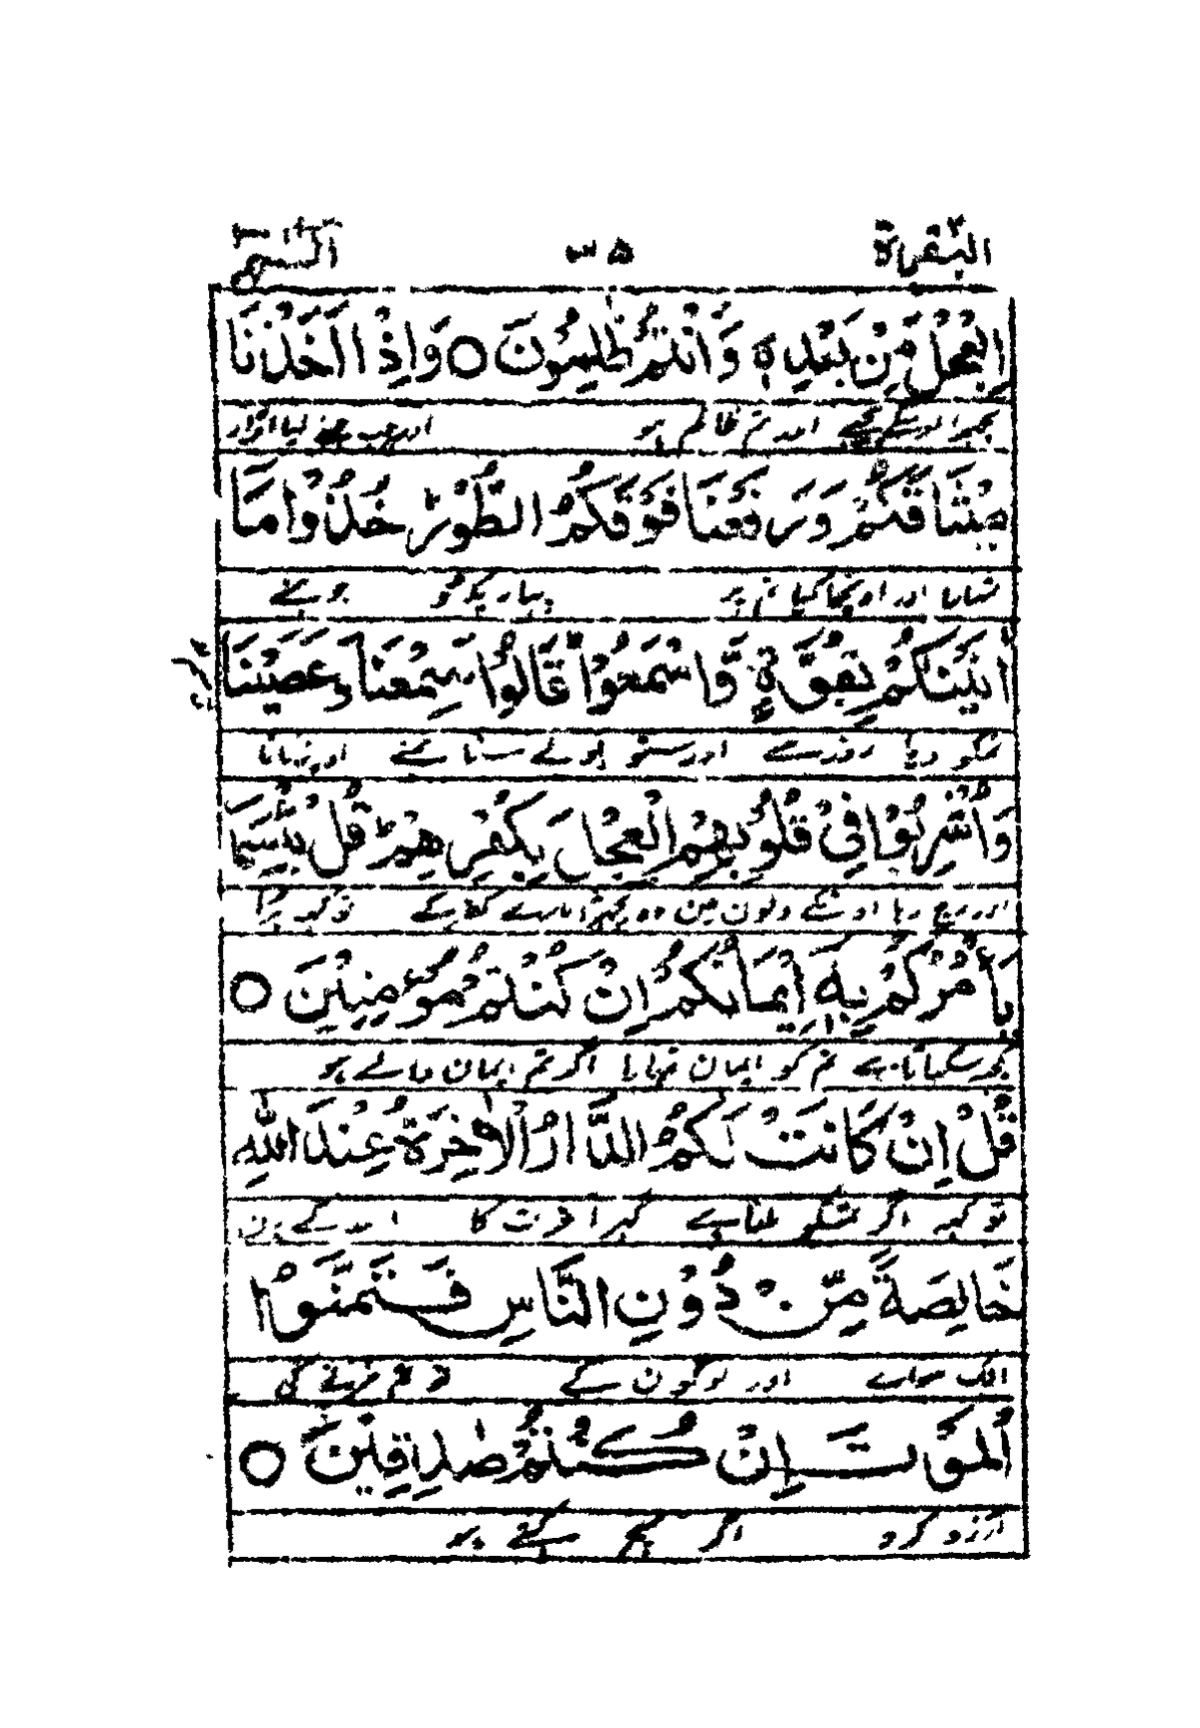 البقرة ۳۵ الٓمّٓ
الْعِجْلَ مِنْ بَعْدِهٖ وَاَنْتُمْ ظٰلِمُوْنَ ○ وَاِذْ اَخَذْنَا
بچھڑا اوسکے پیچھے اور تم ظالم ہو اور جب ہمنے لیا اقرار
مِيْثَاقَكُمْ وَرَفَعْنَا فَوْقَكُمُ الطُّوْرَ ط خُذُوْا مَا
تمہارا اور اونچا کیا تم پر پہاڑ پکڑو جو ہمنے
اٰتَيْنٰكُمْ بِقُوَّةٍ وَّاسْمَعُوْا ط قَالُوْا سَمِعْنَا وَعَصَيْنَا
تمکو دیا زور سے اور سنو بولے سنا ہمنے اور نہ مانا
وَاُشْرِبُوْا فِيْ قُلُوْبِهِمُ الْعِجْلَ بِكُفْرِهِمْ ط قُلْ بِئْسَمَا
اور رچ رہا اونکے دلون مین وہ بچھڑا مارے کفر کے تو کہہ برا
يَأْمُرُكُمْ بِهٖٓ اِيْمَانُكُمْ اِنْ كُنْتُمْ مُّؤْمِنِيْنَ ○
کچھ سکھاتا ہے تم کو ایمان تمہارا اگر تم ایمان والے ہو
قُلْ اِنْ كَانَتْ لَكُمُ الدَّارُ الْاٰخِرَةُ عِنْدَ اللّٰهِ
تو کہہ اگر تمکو ملنا ہے گھر آخرت کا اللہ کے ہان
خَالِصَةً مِّنْ دُوْنِ النَّاسِ فَتَمَنَّوُا
الگ سوائے اور لوگون کے تو تم مرنے کی
الْمَوْتَ اِنْ كُنْتُمْ صٰدِقِيْنَ ○
آرزو کرو اگر سچ کہتے ہو